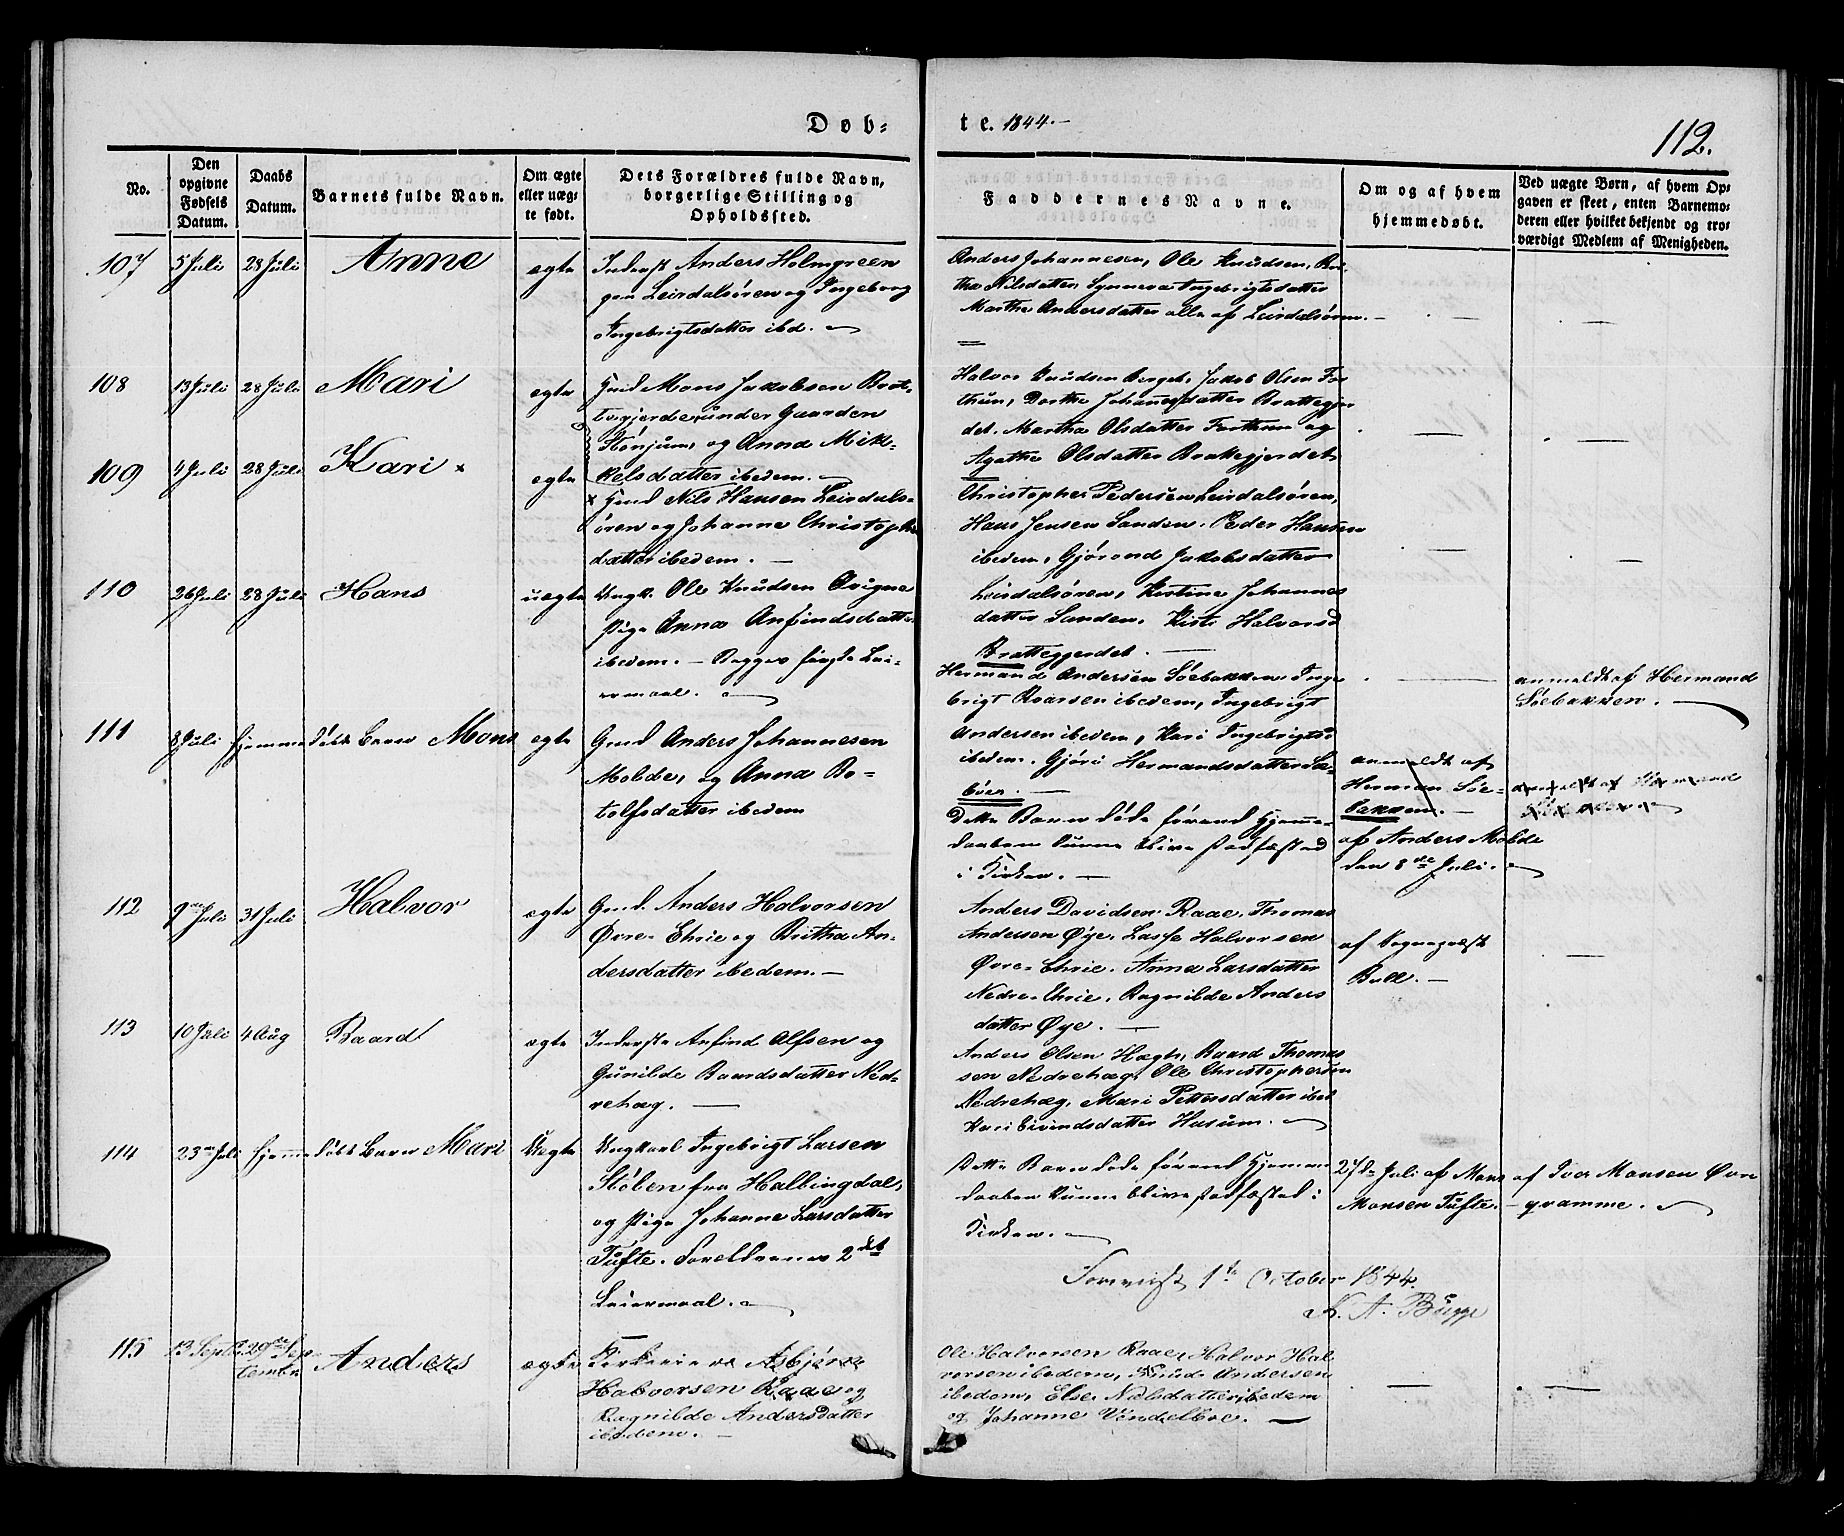 Døb-
te. 1844.-
112.
No.
Den
opgivne
Fødsels
Datum.
Daabs
Datum.
Barnets fulde Navn.
Om ægte
eller uæg-
te født.
Dets Forældres fulde Navn,
borgerlige Stilling og
Opholdssted.
Faddernes Navne.
Om og af hvem
hjemmedøbt.
Ved uægte Børn, af hvem Op-
gaven er skeet, enten Barnemo-
deren eller hvilket bekjendt og tro-
værdigt Medlem af Menigheden.
107 5 Juli 28 Juli Anne ægte
Inderst Anders Holmgreen
paa Leirdalsøren og Ingeborg
Ingebrigtsdatter ibd.
Anders Johannesen, Ole Knudsen, Bri-
tha Nilsdatter, Synneva Ingebrigtsdatter
Marthe Andersdatter alle af Leirdalsøren.
108 13 Juli 28 Juli Mari ægte
Gmd Mons Jakobsen Brat-
tegjerde, under Gaarden
Stønjum, og Anna Mik-
kelsdatter ibedem.
Halvor Knudsen Berget, Jakob Olsen For-
thun, Dorthe Johannesdatter Brattegjer
det. Martha Olsdatter Forthun og
Agatha Olsdatter Brattegjerdet
109 4 Juli 28 Juli Kari x ægte
x Gmd Nils Hansen Leirdals-
øren og Johanne Christophs
datter ibedem.
Christopher Pedersen Leirdalsøren,
Hans Jensen Sanden, Peder Hansen
ibedem, Gjørond Jakobsdatter
Leirdalsøren, Kirstine Johannes
datter Sanden, Kirsti Halvorsd
Brattegjerdet.
110 26 Juli 28 Juli Hans uægte
Ungk. Ole Knudsen Qvigne
Pige Anna Anfindsdatter
ibedem. - Begges første Lei-
ermaal.
Hermand Andersen Søebakken, Inge
brigt Ivarsen ibedem, Ingebrigt
Andersen ibedem, Kari Ingebrigtsd
ibedem. Gjøri Hermandsdatter Sæ-
bøer.
anmeldt af Hermand
Søebakken.
111 8 Juli hjemmedøbt Barn Mons ægte
Gmd Anders Johannesen
Molde, og Anna Bo-
tolfsdatter ibedem
Dette Barn døde førend Hjemme-
daaben kunne blive stadfæsted
i Kirken.
anmeldt af
Herman Søe-
bakken.
af Anders Molde
den 8de Juli.
anmeldt af Hermand
112 9de Juli 31 Juli Halvor ægte
Gmd. Anders Halvorsen
Øvre-Ehrie og Britha An-
dersdatter ibedem.
Anders Davidsen Raae, Thomas
Andersen Øye, Lasse Halvorsen
Øvre-Ehrie. Anna Larsdatter
Nedre-Ehrie, Ragnilde Anders
datter Øye.
af Sognepræst
Bull.
113 10 Juli 4 Aug Baard ægte
Inderste Anfind Alfsen og
Gunilde Baardsdatter Ned-
rehæg.
Anders Olsen Hægh, Baard Thomas
sen Nedrehæg, Ole Christophersen
Nedrehæg, Mari Pettersdatter ibed
Kari Eivindsdatter Husum.
114 23de Juli hjemmedøbt Barn Mari Uægte
Ungkarl Ingebrigt Larsen
Støben fra Hallingdal,
og Pige Johanne Larsdatter
Tufte. Forældrenes 2det
Leiermaal.
Dette Barn døde førend Hjemme
daaben kunne blive stadfæsted i
Kirken.
27de Juli af Mons
Monsen Tufte.
af Iver Monsen Øvre
qvamme.
Forevist 1ste October 1844.
K. A. Bugge
115 13 Septbr 29de Sep-
tember Anders ægte
Kirkeeier Asbjørn
Halvorsen Raae og
Ragnilde Andersdatter
ibedem.
Ole Halvorsen Raae, Halvor Hal
vorsen ibedem, Knud Andersen
ibedem, Else Nilsdatter ibedem
og Johanne Vindelboe.